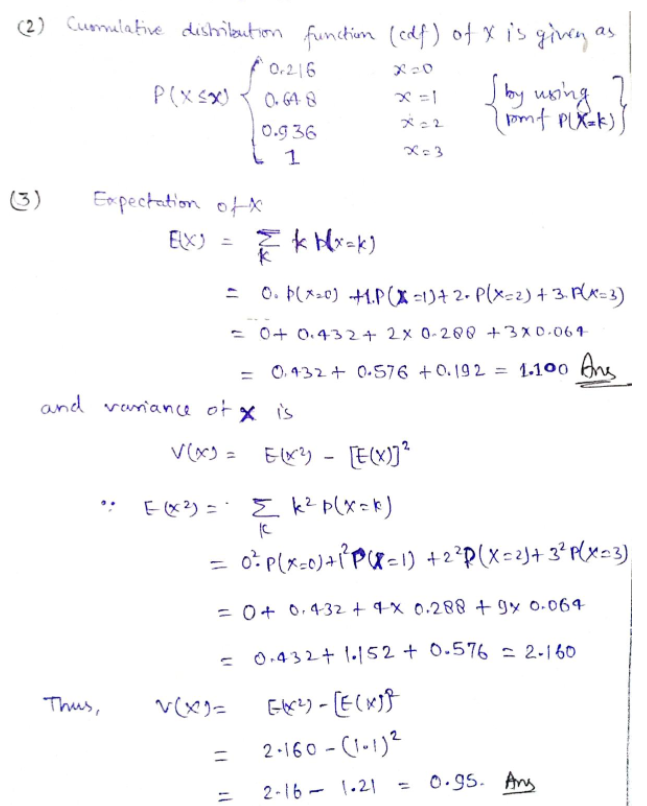 (2) Cummulative distribution function (cdf) of X is given as
P(X≤x) { 0.216 x=0
0.648 x=1 {by using
0.936 x=2 pmf P(X=k)}
1 x=3
(3) Expectation of X
E(X) = Σ_k k p(x=k)
= 0. p(x=0) +1.P(X=1)+2. P(X=2)+3.P(X=3)
= 0+ 0.432+ 2x 0.288 +3x0.064
= 0.432+ 0.576 +0.192 = 1.100 Ans
and variance of x is
V(X) = E(X²) - [E(X)]²
∵ E(X²) = Σ_k k² p(X=k)
= 0².P(X=0)+1²P(X=1) +2²P(X=2)+3²P(X=3)
= 0+ 0.432+4x 0.288 + 9x 0.064
= 0.432+ 1.152 + 0.576 = 2.160
Thus, V(X)= E(X²)-[E(X)]²
= 2.160-(1.1)²
= 2.16- 1.21 = 0.95. Ans